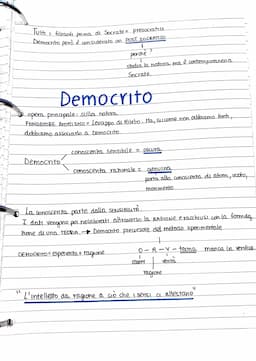 Tutti i filosofi prima di Socrate = presocratici
Democrito però è considerato un post socratico
perché?
studia la natura ma è contemporaneo a
Socrate.
Democrito
opera principale: sulla natura
ma, siccome non abbiamo fonti,
dobbiamo associarlo a Democrito
Democrito
conoscenza sensibile = oscura
conoscenza razionale = genuina
porta alla conoscenza di atomi, vuoto,
movimento
La conoscenza parte dalla sensibilità
I dati vengono poi rielaborati attraverso la ragione e racchiusi con la formula
zione di una teoria → Democrito precursore del metodo sperimentale
Democrito = esperienza + ragione
O - R - V - teoria manca la verifica
ragione
"L'intelletto dà ragione a ciò che i sensi ci attestano"